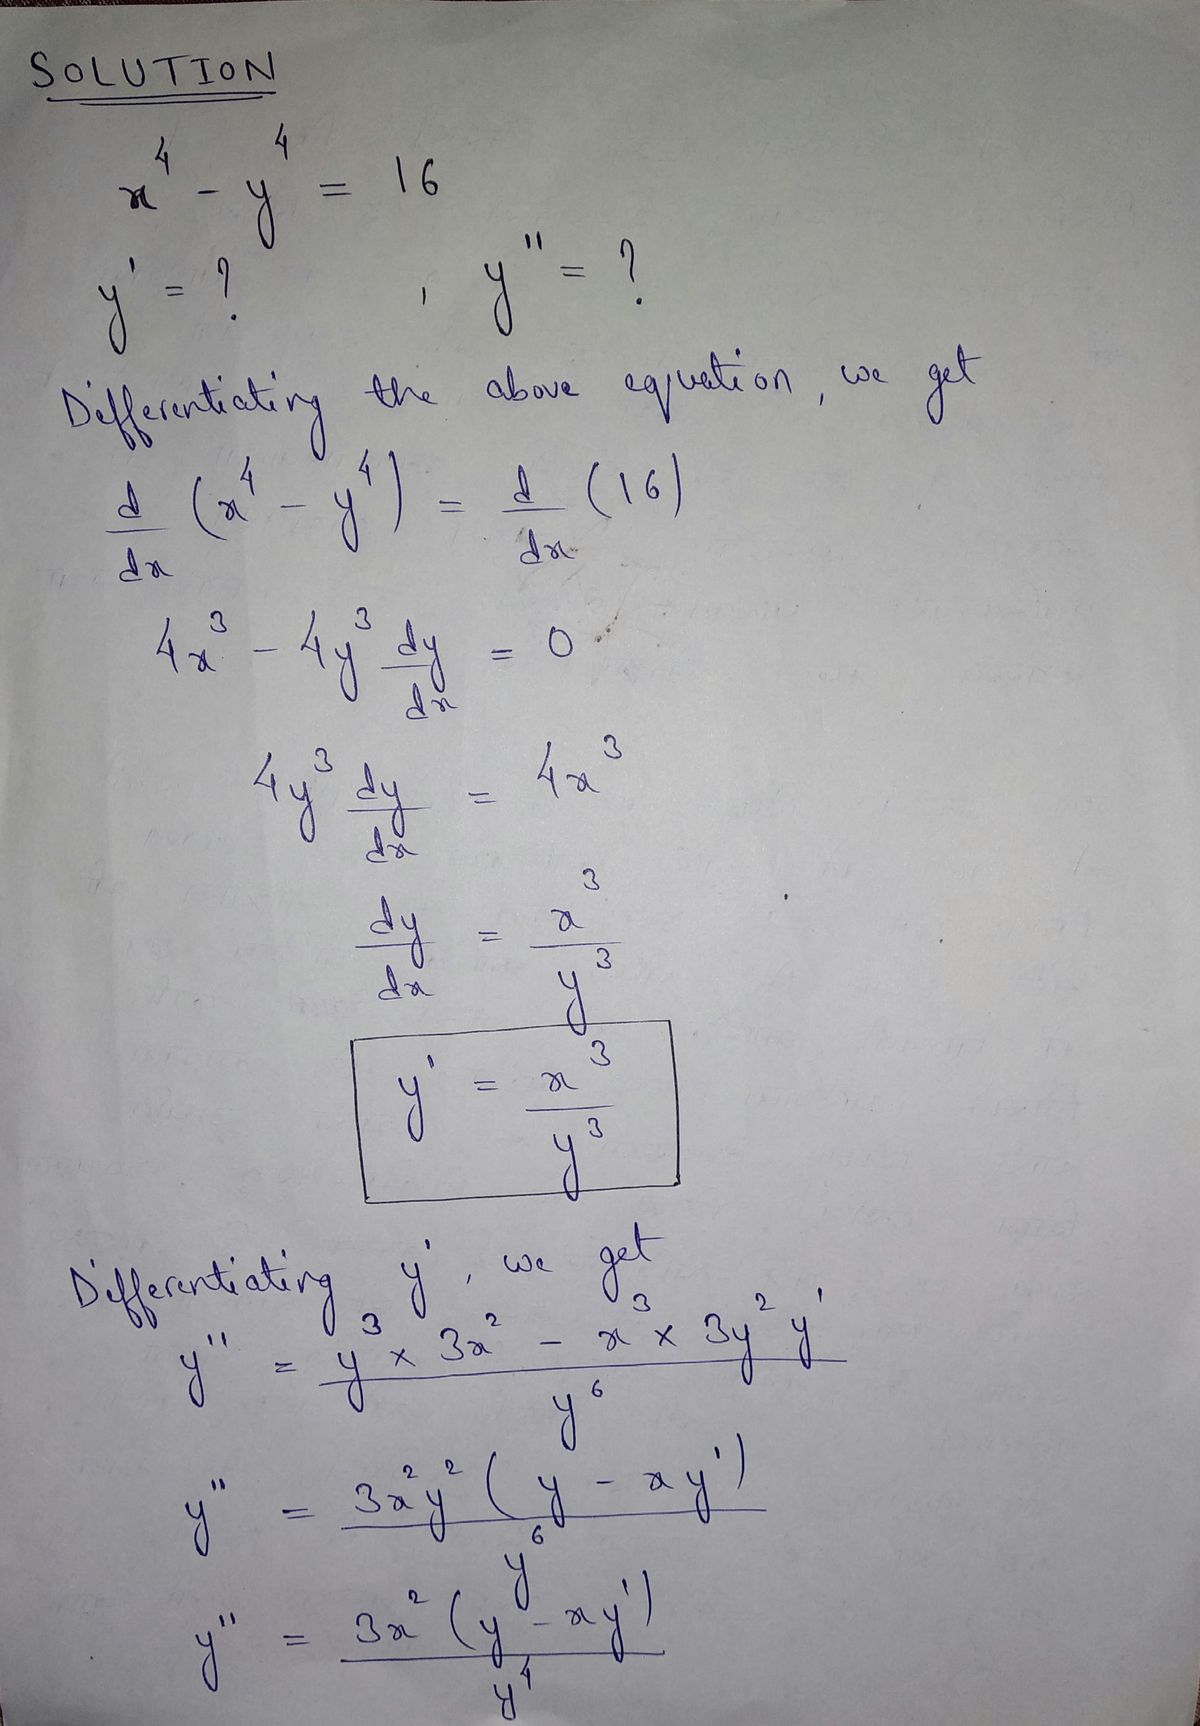 SOLUTION
x⁴ - y⁴ = 16
y' = ? , y'' = ?
Differentiating the above equation, we get
d/dx (x⁴ - y⁴) = d/dx (16)
4x³ - 4y³ dy/dx = 0
4y³ dy/dx = 4x³
dy/dx = x³/y³
y' = x³/y³
Differentiating y', we get
y'' = (y³ × 3x² - x³ × 3y² y')/y⁶
y'' = 3x²y² (y - xy')/y⁶
y'' = 3x² (y - xy')/y⁴